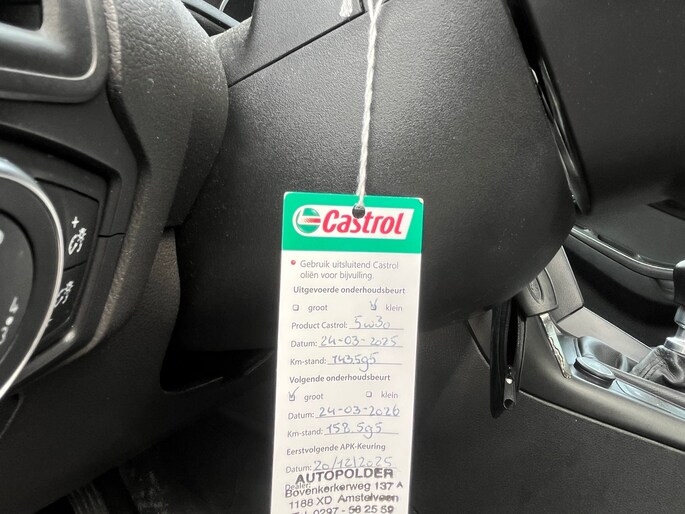 Castrol
Gebruik uitsluitend Castrol
oliën voor bijvulling.
Uitgevoerde onderhoudsbeurt
groot klein
Product Castrol: 5w30
Datum: 24-03-2025
Km-stand: 143595
Volgende onderhoudsbeurt
groot klein
Datum: 24-03-2026
Km-stand: 158.595
Eerstvolgende APK-Keuring
Datum: 20/12/2025
Dealer:
AUTOPOLDER
Bovenkerkerweg 137 A
1188 XD Amstelveen
Tel. 0297 - 56 25 59